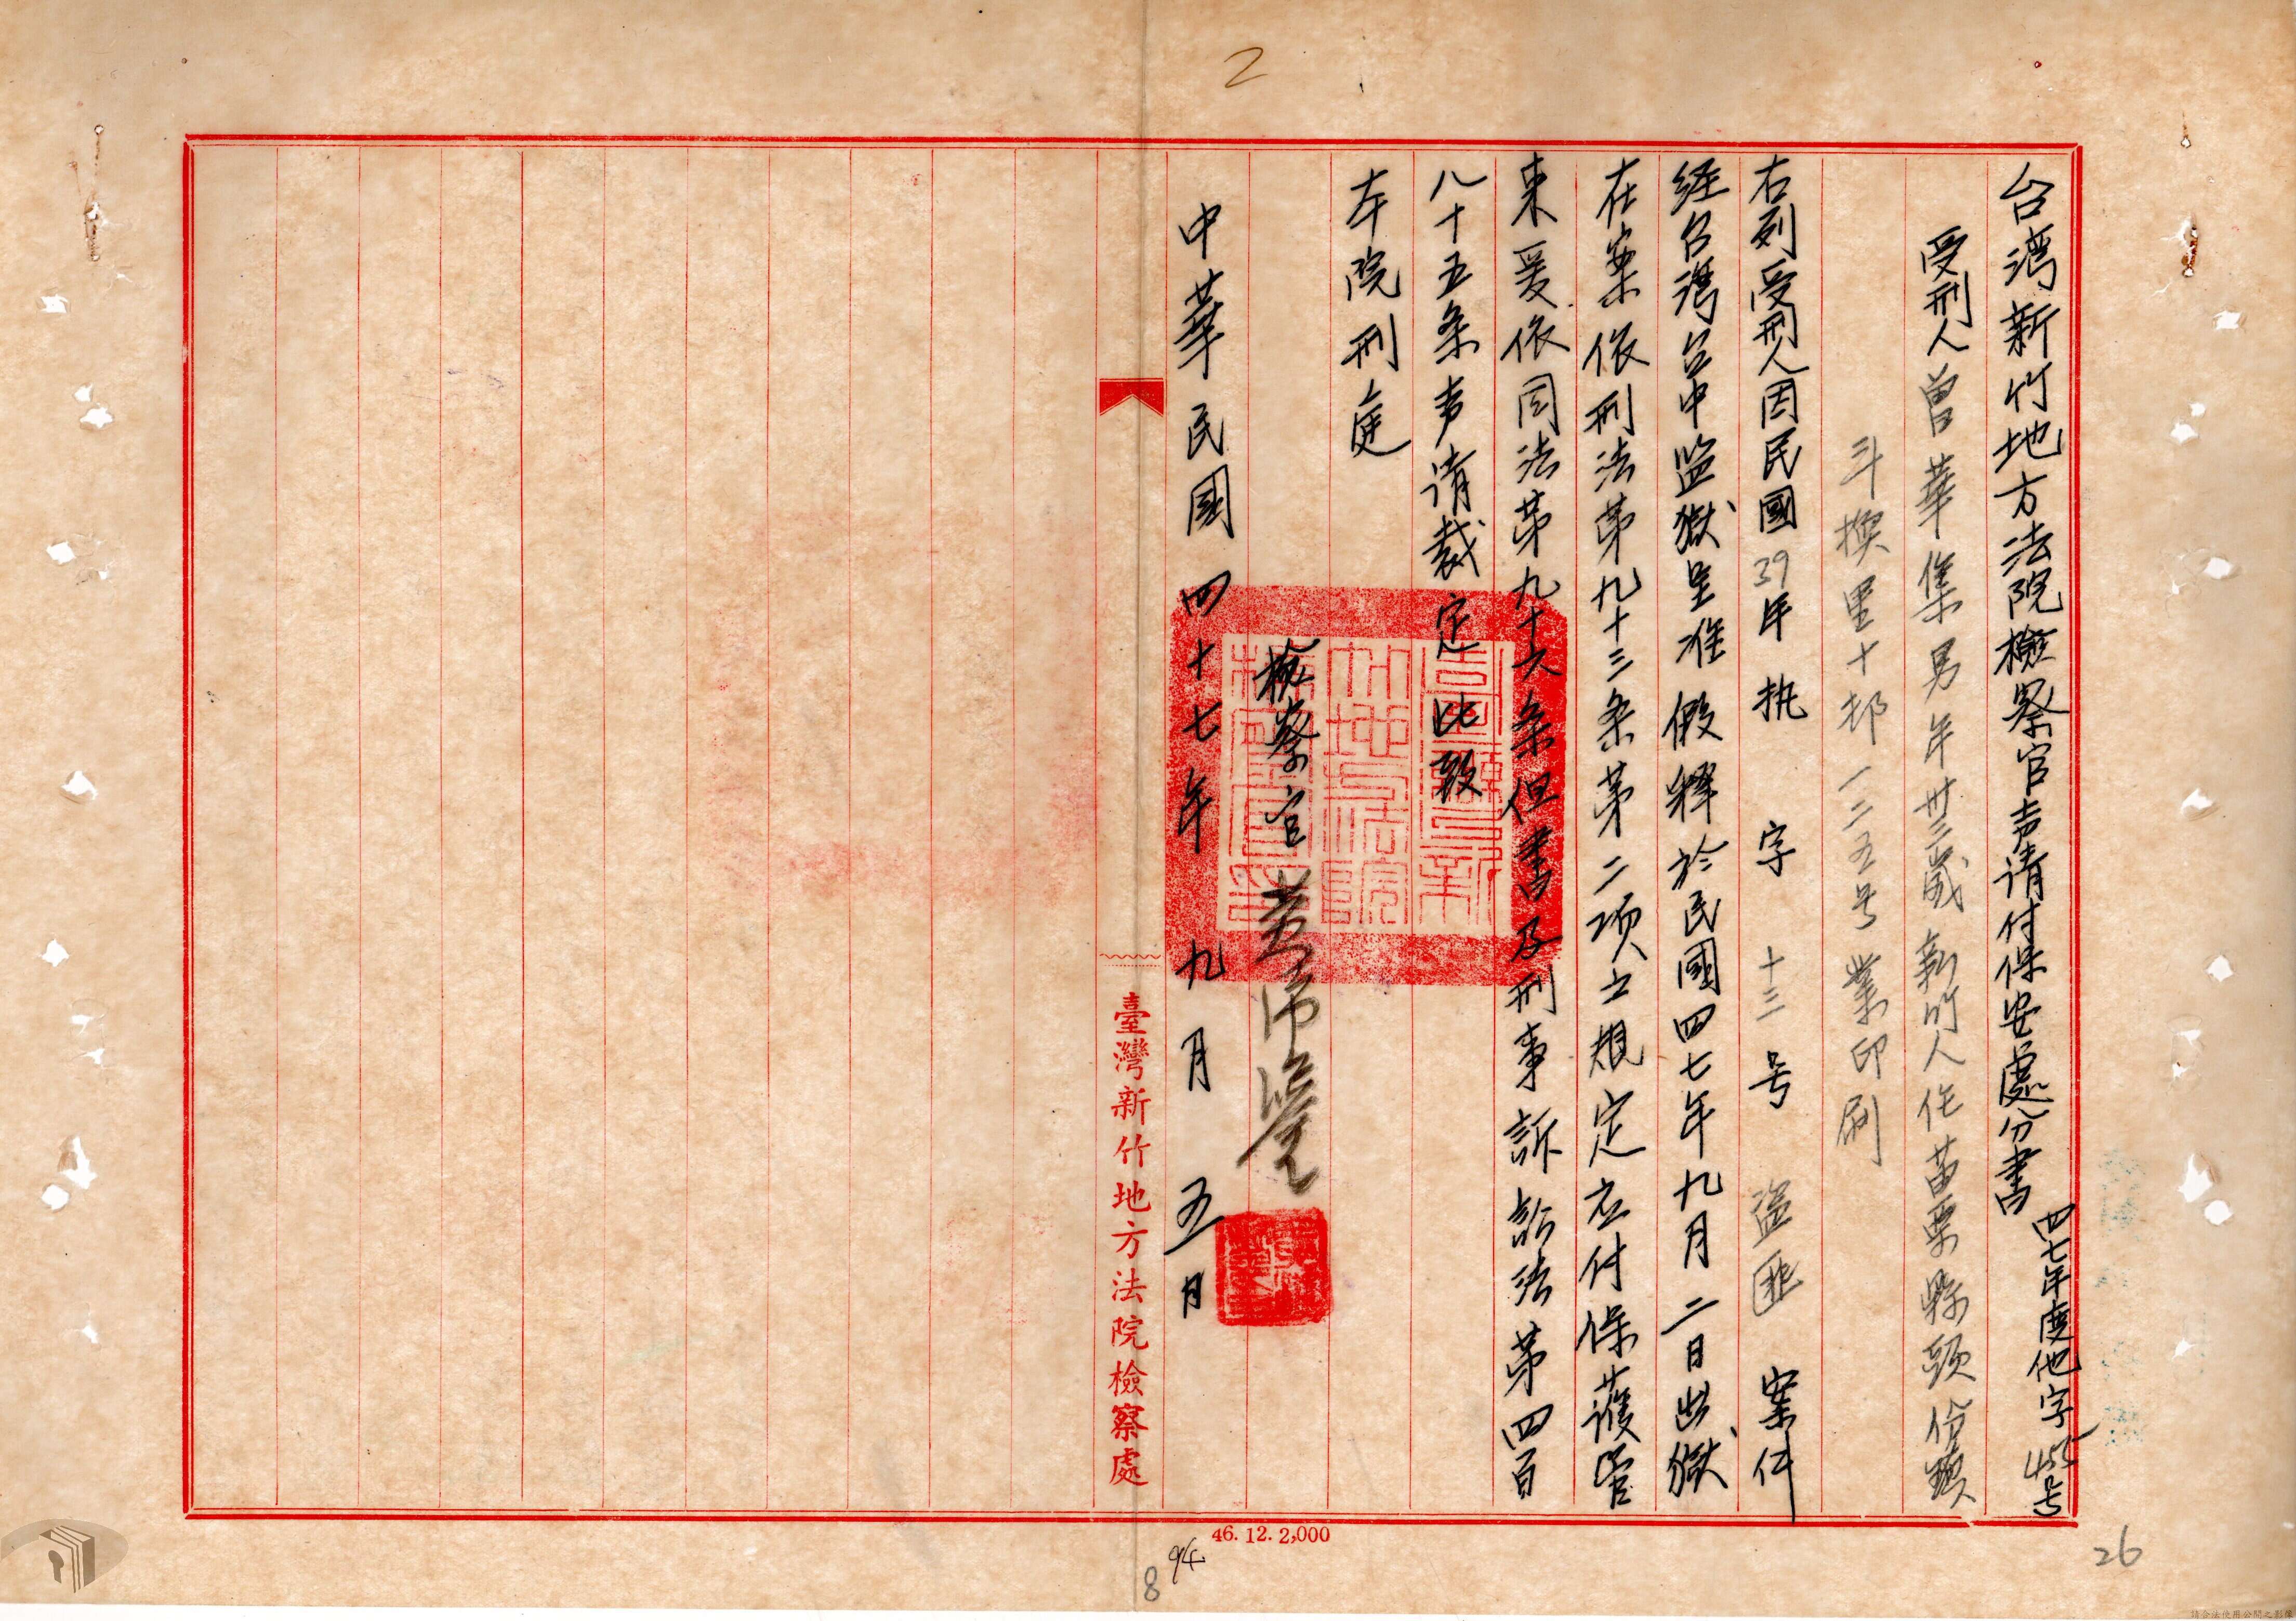 2
台湾新竹地方法院檢察官声请付保安處分書
四七年度他字455号
受刑人曾華集男年卅三歲新竹人住苗栗縣頭份鎮
斗換里十邻一二五号業印刷
右列受刑人因民國39年执字十三号盜匪案件
经台灣台中监獄呈准假釋於民國四七年九月二日出獄
在案依刑法第九十三条第二项之規定应付保護管
束爰依同法第九十六条但書及刑事訴訟法第四百
八十五条声请裁定此致
本院刑庭
檢察官黃
中華民國四十七年九月五日
臺灣新竹地方法院檢察處
46. 12. 2,000
94
8
26
請合法使用公開之影像